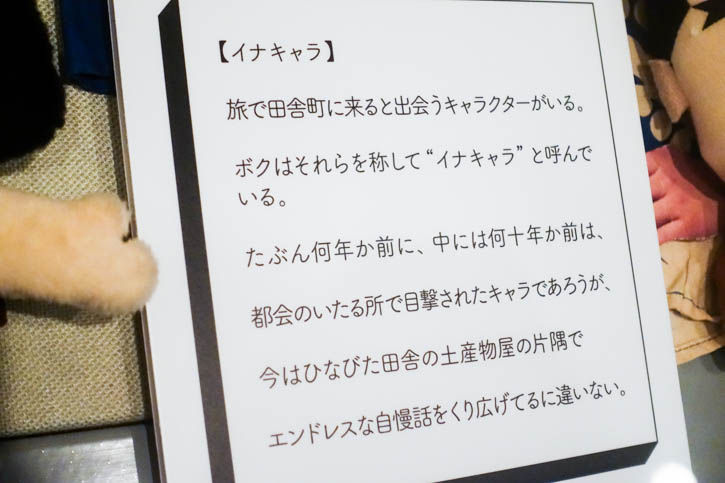 【イナキャラ】
旅で田舎町に来ると出会うキャラクターがいる。
ボクはそれらを称して“イナキャラ”と呼んで
いる。
たぶん何年か前に、中には何十年か前は、
都会のいたる所で目撃されたキャラであろうが、
今はひなびた田舎の土産物屋の片隅で
エンドレスな自慢話をくり広げてるに違いない。